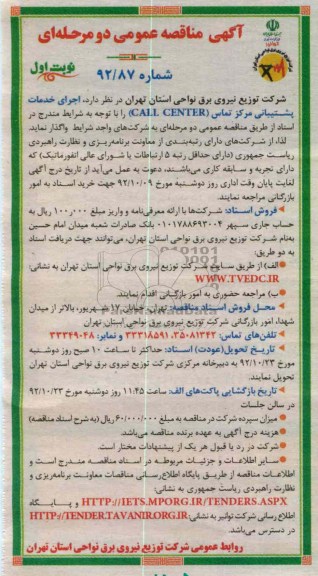 آگهی مناقصه عمومی دو مرحله‌ای
نوبت اول
شماره ۹۲/۸۷
شرکت توزیع نیروی برق نواحی استان تهران در نظر دارد، اجرای خدمات
پشتیبانی مرکز تماس (CALL CENTER) را با توجه به شرایط مندرج در
اسناد از طریق مناقصه عمومی دو مرحله‌ای به شرکت‌های واجد شرایط واگذار نماید.
لذا، از شرکت‌های دارای رتبه‌بندی از معاونت برنامه‌ریزی و نظارت راهبردی
ریاست جمهوری (دارای حداقل رتبه ۵ ارتباطات یا شورای عالی انفورماتیک) که
دارای تجربه و سابقه کاری می‌باشند، دعوت به عمل می‌آید از تاریخ درج آگهی
لغایت پایان وقت اداری روز دوشنبه مورخ ۹۲/۱۰/۰۹ جهت خرید اسناد به امور
بازرگانی مراجعه نمایند.
فروش اسناد: شرکت‌ها با ارائه معرفی‌نامه و واریز مبلغ ۱۰۰٫۰۰۰ ریال به
حساب جاری سپهر ۰۱۰۱۷۸۸۶۹۳۰۰۴ بانک صادرات شعبه میدان امام حسین
به‌نام شرکت توزیع نیروی برق نواحی استان تهران، می‌توانند جهت دریافت اسناد
به دو طریق:
الف) از طریق سایت شرکت توزیع نیروی برق نواحی استان تهران به نشانی:
WWW.TVEDC.IR
ب) مراجعه حضوری به امور بازرگانی اقدام نمایند.
محل فروش اسناد مناقصه: تهران، خیابان ۱۷ شهریور، بالاتر از میدان
شهدا، امور بازرگانی شرکت توزیع نیروی برق نواحی استان تهران
تلفن‌های تماس: ۳۵۰۸۱۳۴۲، ۳۳۳۱۸۵۹۱ و نمابر: ۳۳۳۴۹۰۴۸
تاریخ تحویل(عودت) اسناد: حداکثر تا ساعت ۱۰ صبح روز دوشنبه
مورخ ۹۲/۱۰/۲۳ به دبیرخانه مرکزی شرکت توزیع نیروی برق نواحی استان تهران
تحویل نمایند.
تاریخ بازگشایی پاکت‌های الف: ساعت ۱۱:۴۵ روز دوشنبه مورخ ۹۲/۱۰/۲۳
در سالن جلسات
میزان سپرده شرکت در مناقصه به مبلغ ۶۰/۰۰۰/۰۰۰ ریال (به شرح اسناد مناقصه)
هزینه درج آگهی به عهده برنده مناقصه می‌باشد.
شرکت در رد یا قبول هر یک از پیشنهادات مختار است.
سایر اطلاعات و جزئیات مربوطه در اسناد مناقصه مندرج است و
اطلاعات مناقصه از طریق پایگاه اطلاع‌رسانی مناقصات معاونت برنامه‌ریزی و
نظارت راهبردی ریاست جمهوری به نشانی:
HTTP://IETS.MPORG.IR/TENDERS.ASPX و پایگاه
اطلاع رسانی شرکت توانیر به نشانی: HTTP://TENDER.TAVANIR.ORG.IR
در دسترس می‌باشد.
روابط عمومی شرکت توزیع نیروی برق نواحی استان تهران